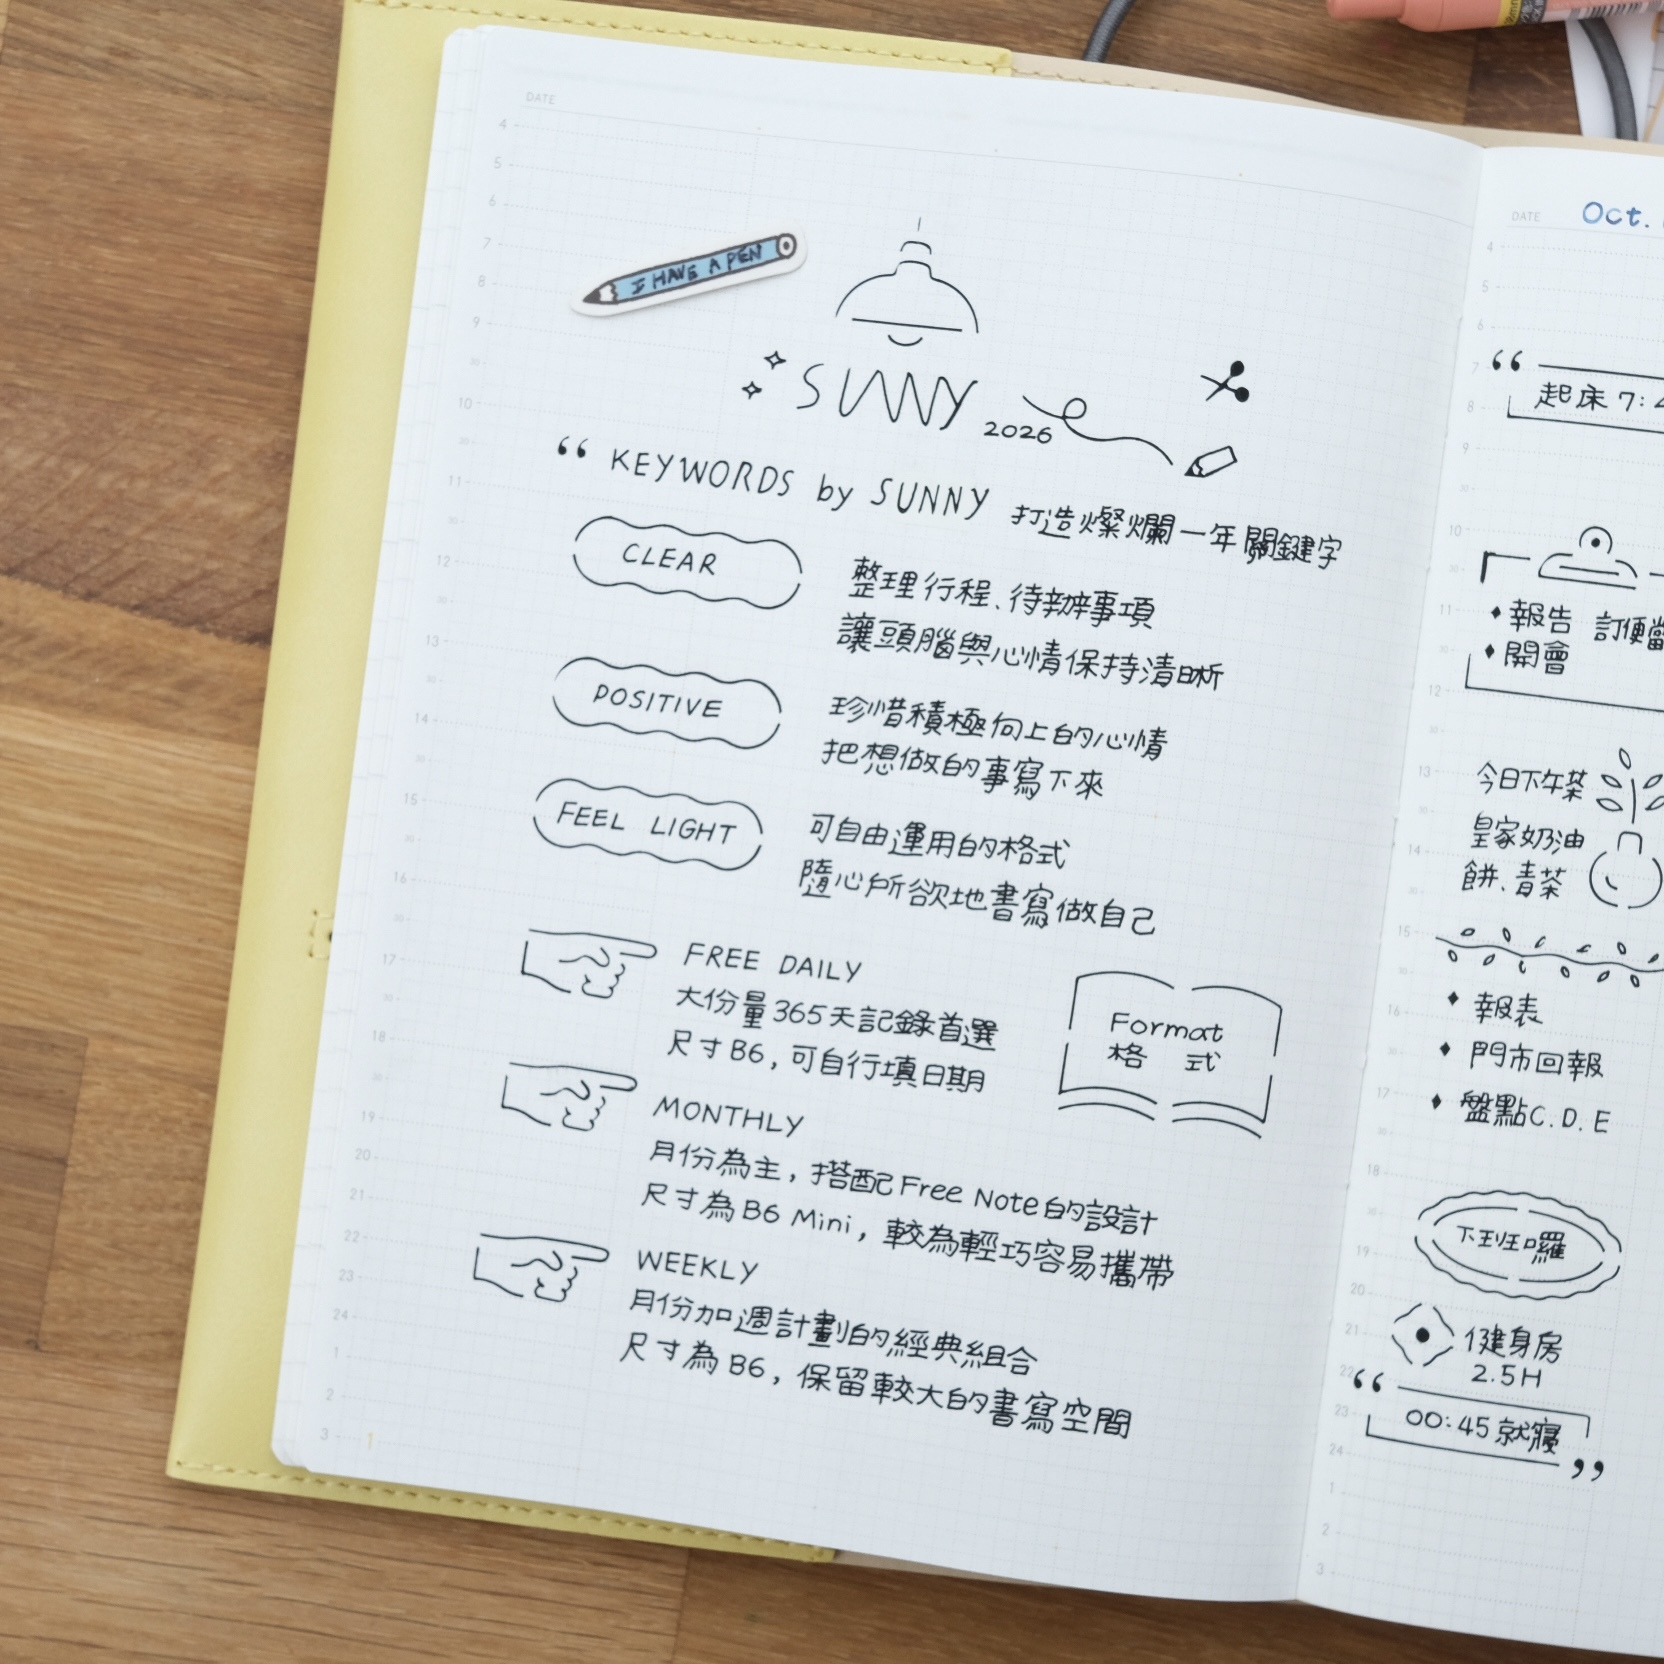 DATE
I HAVE A PEN
SUNNY 2026
“ KEYWORDS by SUNNY 打造燦爛一年關鍵字
CLEAR
整理行程、待辦事項
讓頭腦與心情保持清晰
POSITIVE
珍惜積極向上的心情
把想做的事寫下來
FEEL LIGHT
可自由運用的格式
隨心所欲地書寫做自己
FREE DAILY
大份量365天記錄首選
尺寸B6,可自行填日期
Format
格 式
MONTHLY
月份為主,搭配Free Note的設計
尺寸為B6 Mini,較為輕巧容易攜帶
WEEKLY
月份加週計劃的經典組合
尺寸為B6,保留較大的書寫空間
4
5
6
7
8
9
30
10
30
11
30
12
30
13
30
14
30
15
30
16
30
17
30
18
30
19
20
21
22
23
24
1
2
3
1
DATE Oct.
“ 起床 7:4
報告 訂便當
開會
今日下午茶
皇家奶油
餅、青茶
報表
門市回報
盤點C.D.E
下班囉
健身房
2.5H
“ 00:45就寢 ”
4
5
6
7
8
9
30
10
30
11
30
12
13
30
14
30
15
30
16
30
17
30
18
30
19
20
21
22
23
24
1
2
3